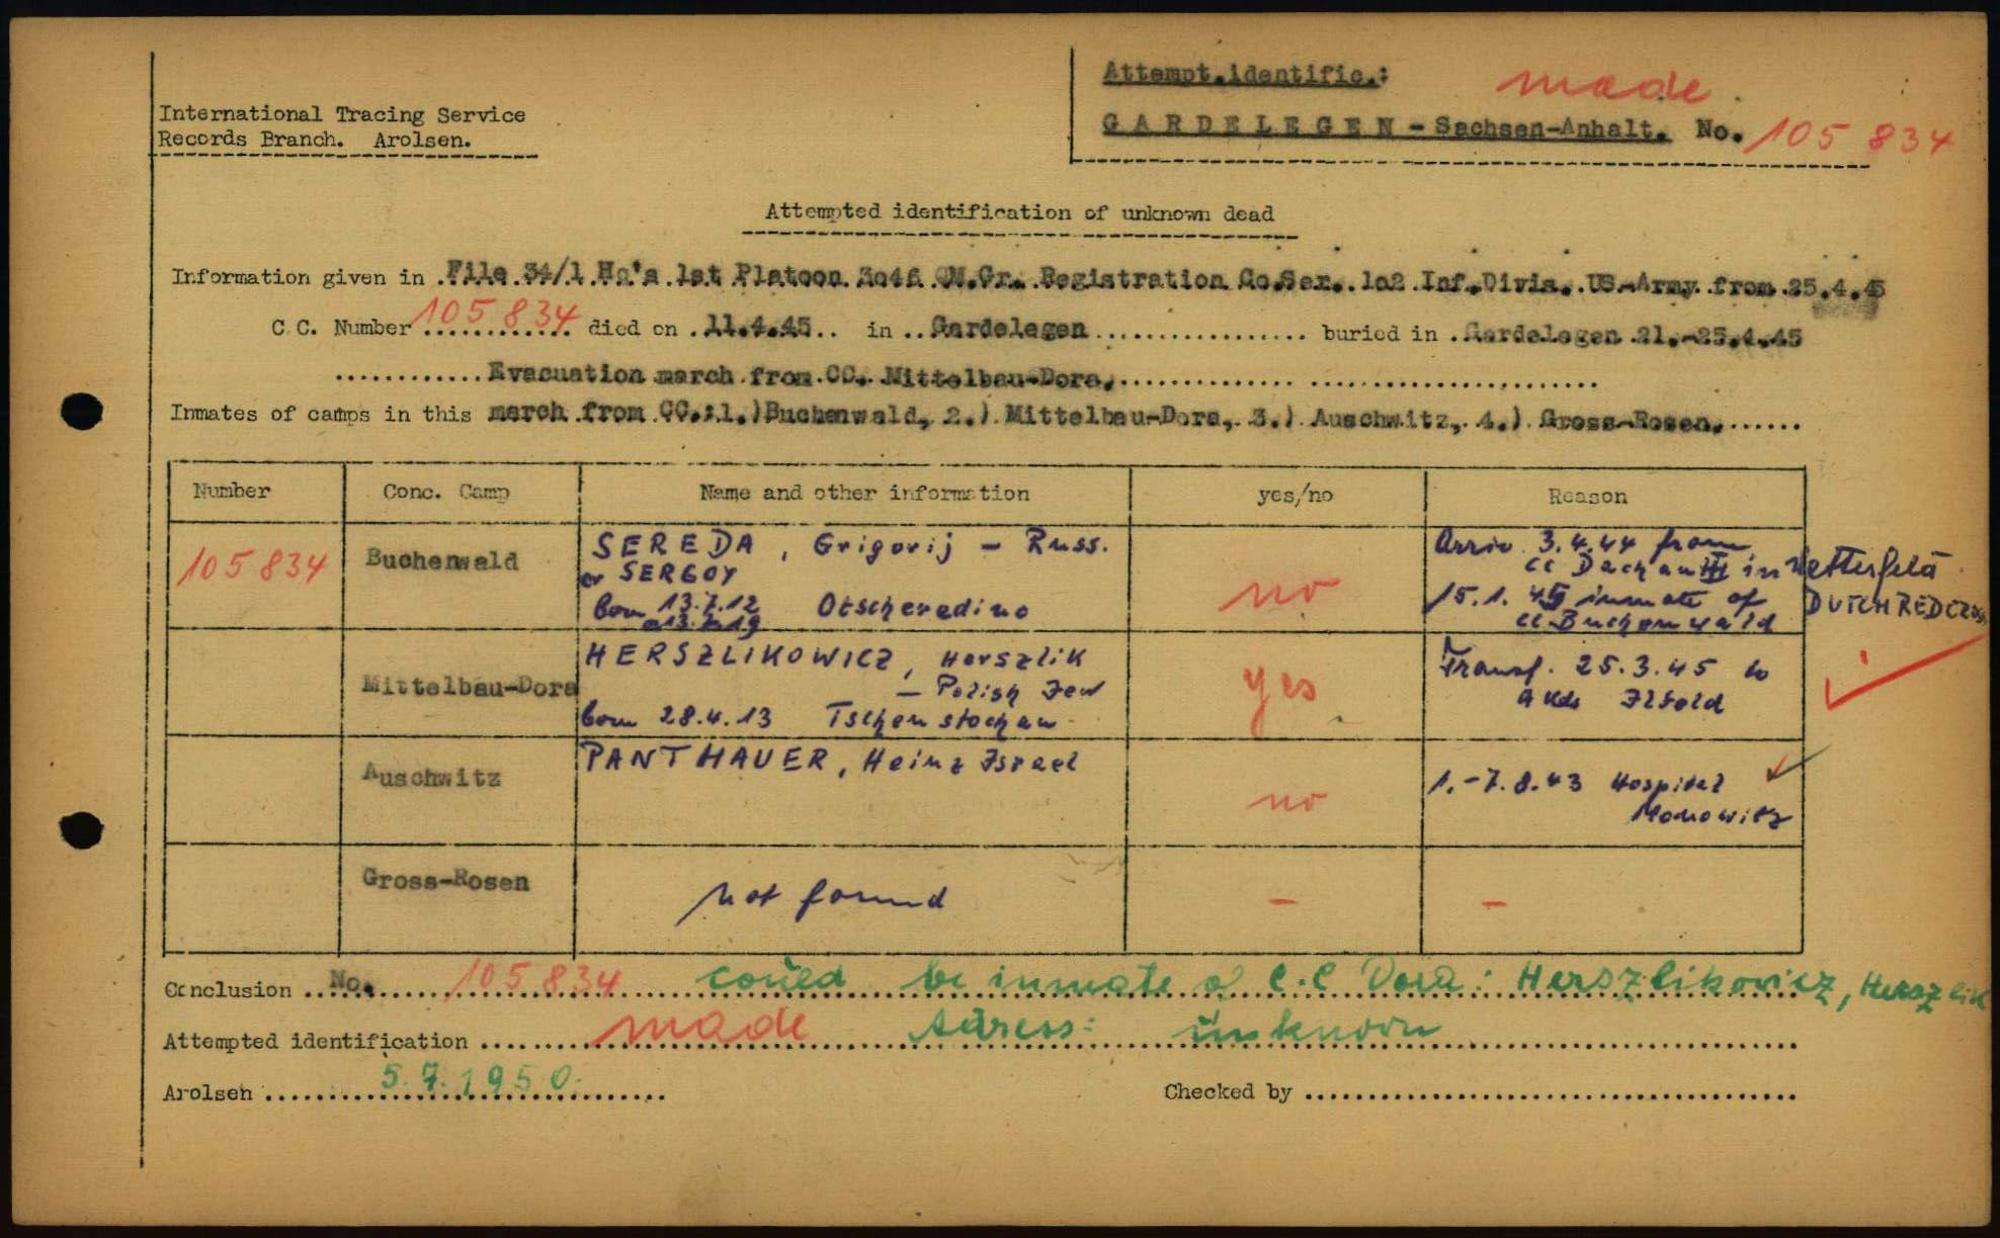 International Tracing Service
Records Branch. Arolsen.
Attempt.identific.: made
GARDELEGEN - Sachsen-Anhalt. No. 105 834
Attempted identification of unknown dead
Information given in File 34/1 Hq's 1st Platoon 3046 QM.Gr. Registration Co.Ser. 1o2 Inf.Divis. US-Army from 25.4.45
C C. Number 105 834 died on 11.4.45 in Gardelegen buried in Gardelegen 21.-25.4.45
Evacuation march from CC. Mittelbau-Dora,
Inmates of camps in this march from CC.:1.)Buchenwald, 2.) Mittelbau-Dora, 3.) Auschwitz, 4.) Gross-Rosen.
Number Conc. Camp Name and other information yes/no Reason
105 834 Buchenwald SEREDA, Grigorij - Russ.
or SERGOY
born 13.7.12 Otscheredino
13.7.19
no
Arriv. 3.4.44 from
CC Dachau III in
15.1.45 inmate of
CC Buchenwald
DUTCH RED CROSS
Mittelbau-Dora HERSZLIKOWICZ, Herszlik
- Polish Jew
born 28.4.13 Tschenstochau
yes
Transf. 25.3.45 to
Akdo Ilfeld
Auschwitz PANTHAUER, Heinz Israel
no
1.-7.8.43 Hospital
Monowitz
Gross-Rosen not found - -
Conclusion No. 105 834 could be inmate of C.C Dora: Herszlikowicz, Herszlik
Attempted identification made Adress: unknown
Arolsen 5.7.1950. Checked by